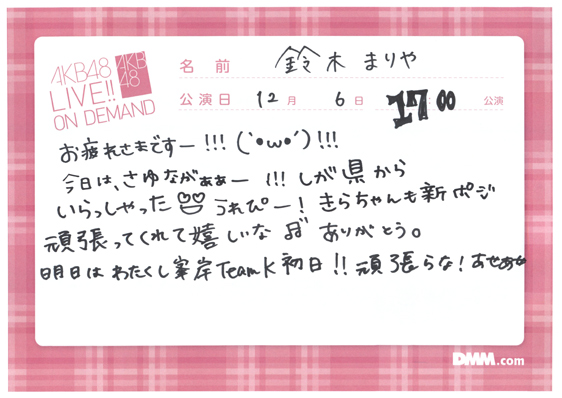 AKB48
LIVE!!
ON DEMAND
AKB
48
名前 鈴木まりや
公演日 12月 6日 17:00 公演
お疲れさまですー!!! (`•ω•´)!!!
今日は、さゆながぁぁー !!! しが県から
いらっしゃった うれぴー! きらちゃんも新ポジ
頑張ってくれて嬉しいな ありがとう。
明日は わたくし峯岸TeamK初日!! 頑張らな!
DMM.com